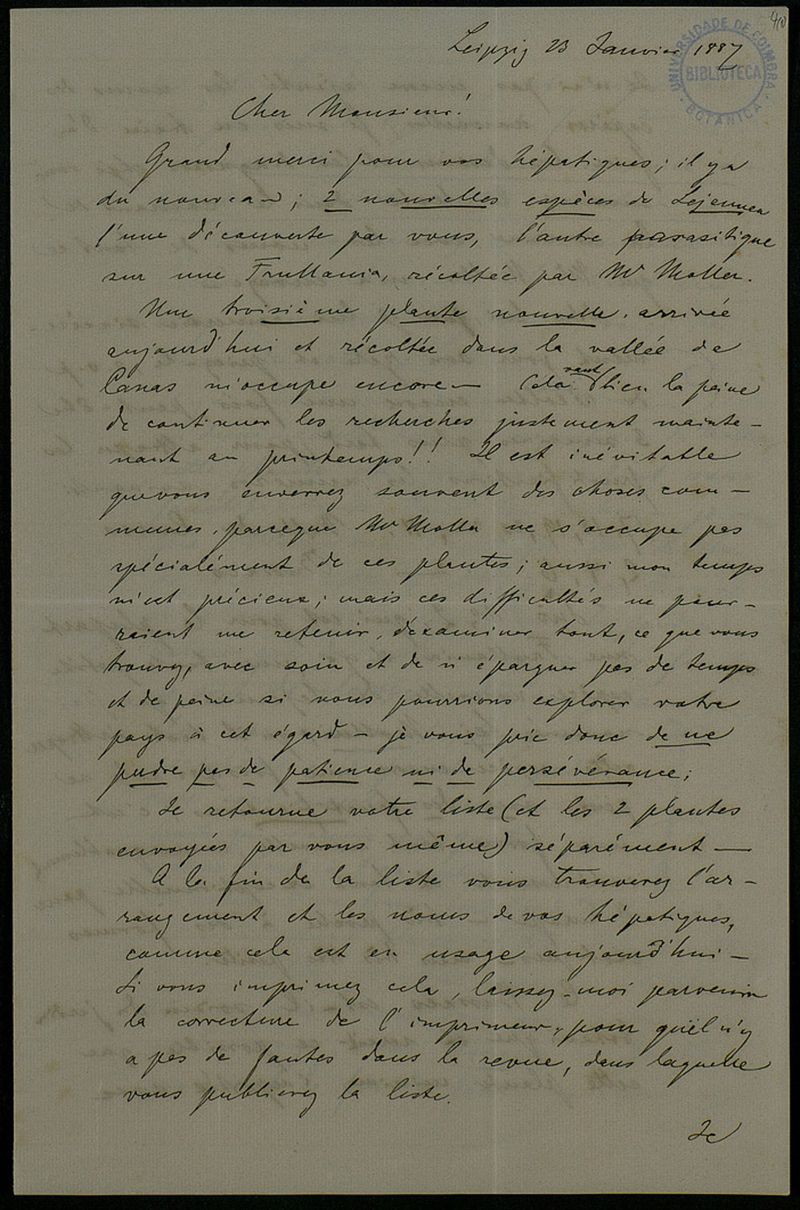 40
UNIVERSIDADE DE COIMBRA
BIBLIOTECA
BOTANICA
Leipzig 23 Janvier 1887
Cher Monsieur!
Grand merci pour vos hépatiques; il y a
du nouveau; 2 nouvelles espèces de Lejeunea
l'une découverte par vous, l'autre parasitique
sur une Frullania, récoltée par Mr Moller.
Une troisième plante nouvelle, arrivée
aujourd'hui et récoltée dans la vallée de
Canas m'occupe encore — Cela vaut bien la peine
de continuer les recherches justement mainte-
nant au printemps!! Il est inévitable
que vous enverrez souvent des choses com-
munes, parceque Mr Moller ne s'occupe pas
spécialement de ces plantes; aussi mon temps
m'est précieux; mais ces difficultés ne pour-
raient me retenir, d'examiner tout, ce que vous
trouvez, avec soin et de n'épargner pas de temps
et de peine si nous pourrions explorer votre
pays à cet égard — je vous prie donc de ne
perdre pas de patience ni de persévérance;
Je retourne votre liste (et les 2 plantes
envoyées par vous même) séparément —
A la fin de la liste vous trouverez l'ar-
rangement et les noms de vos hépatiques,
comme cela est en usage aujourd'hui —
Si vous imprimez cela, laissez-moi parvenir
la correcture de l'imprimeur, pour qu'il n'y
a pas de fautes dans la revue, dans laquelle
vous publierez la liste.
Je